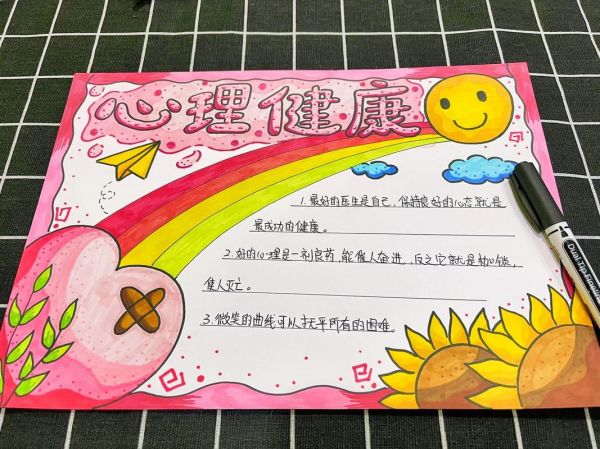 心理健康
1.最好的医生是自己,保持良好的心态就是
最成功的健康。
2.好的心理是一剂良药,能催人奋进,反之它就是枷锁,
使人灭亡。
3.微笑的曲线可以抚平所有的困难。
Dual Tip